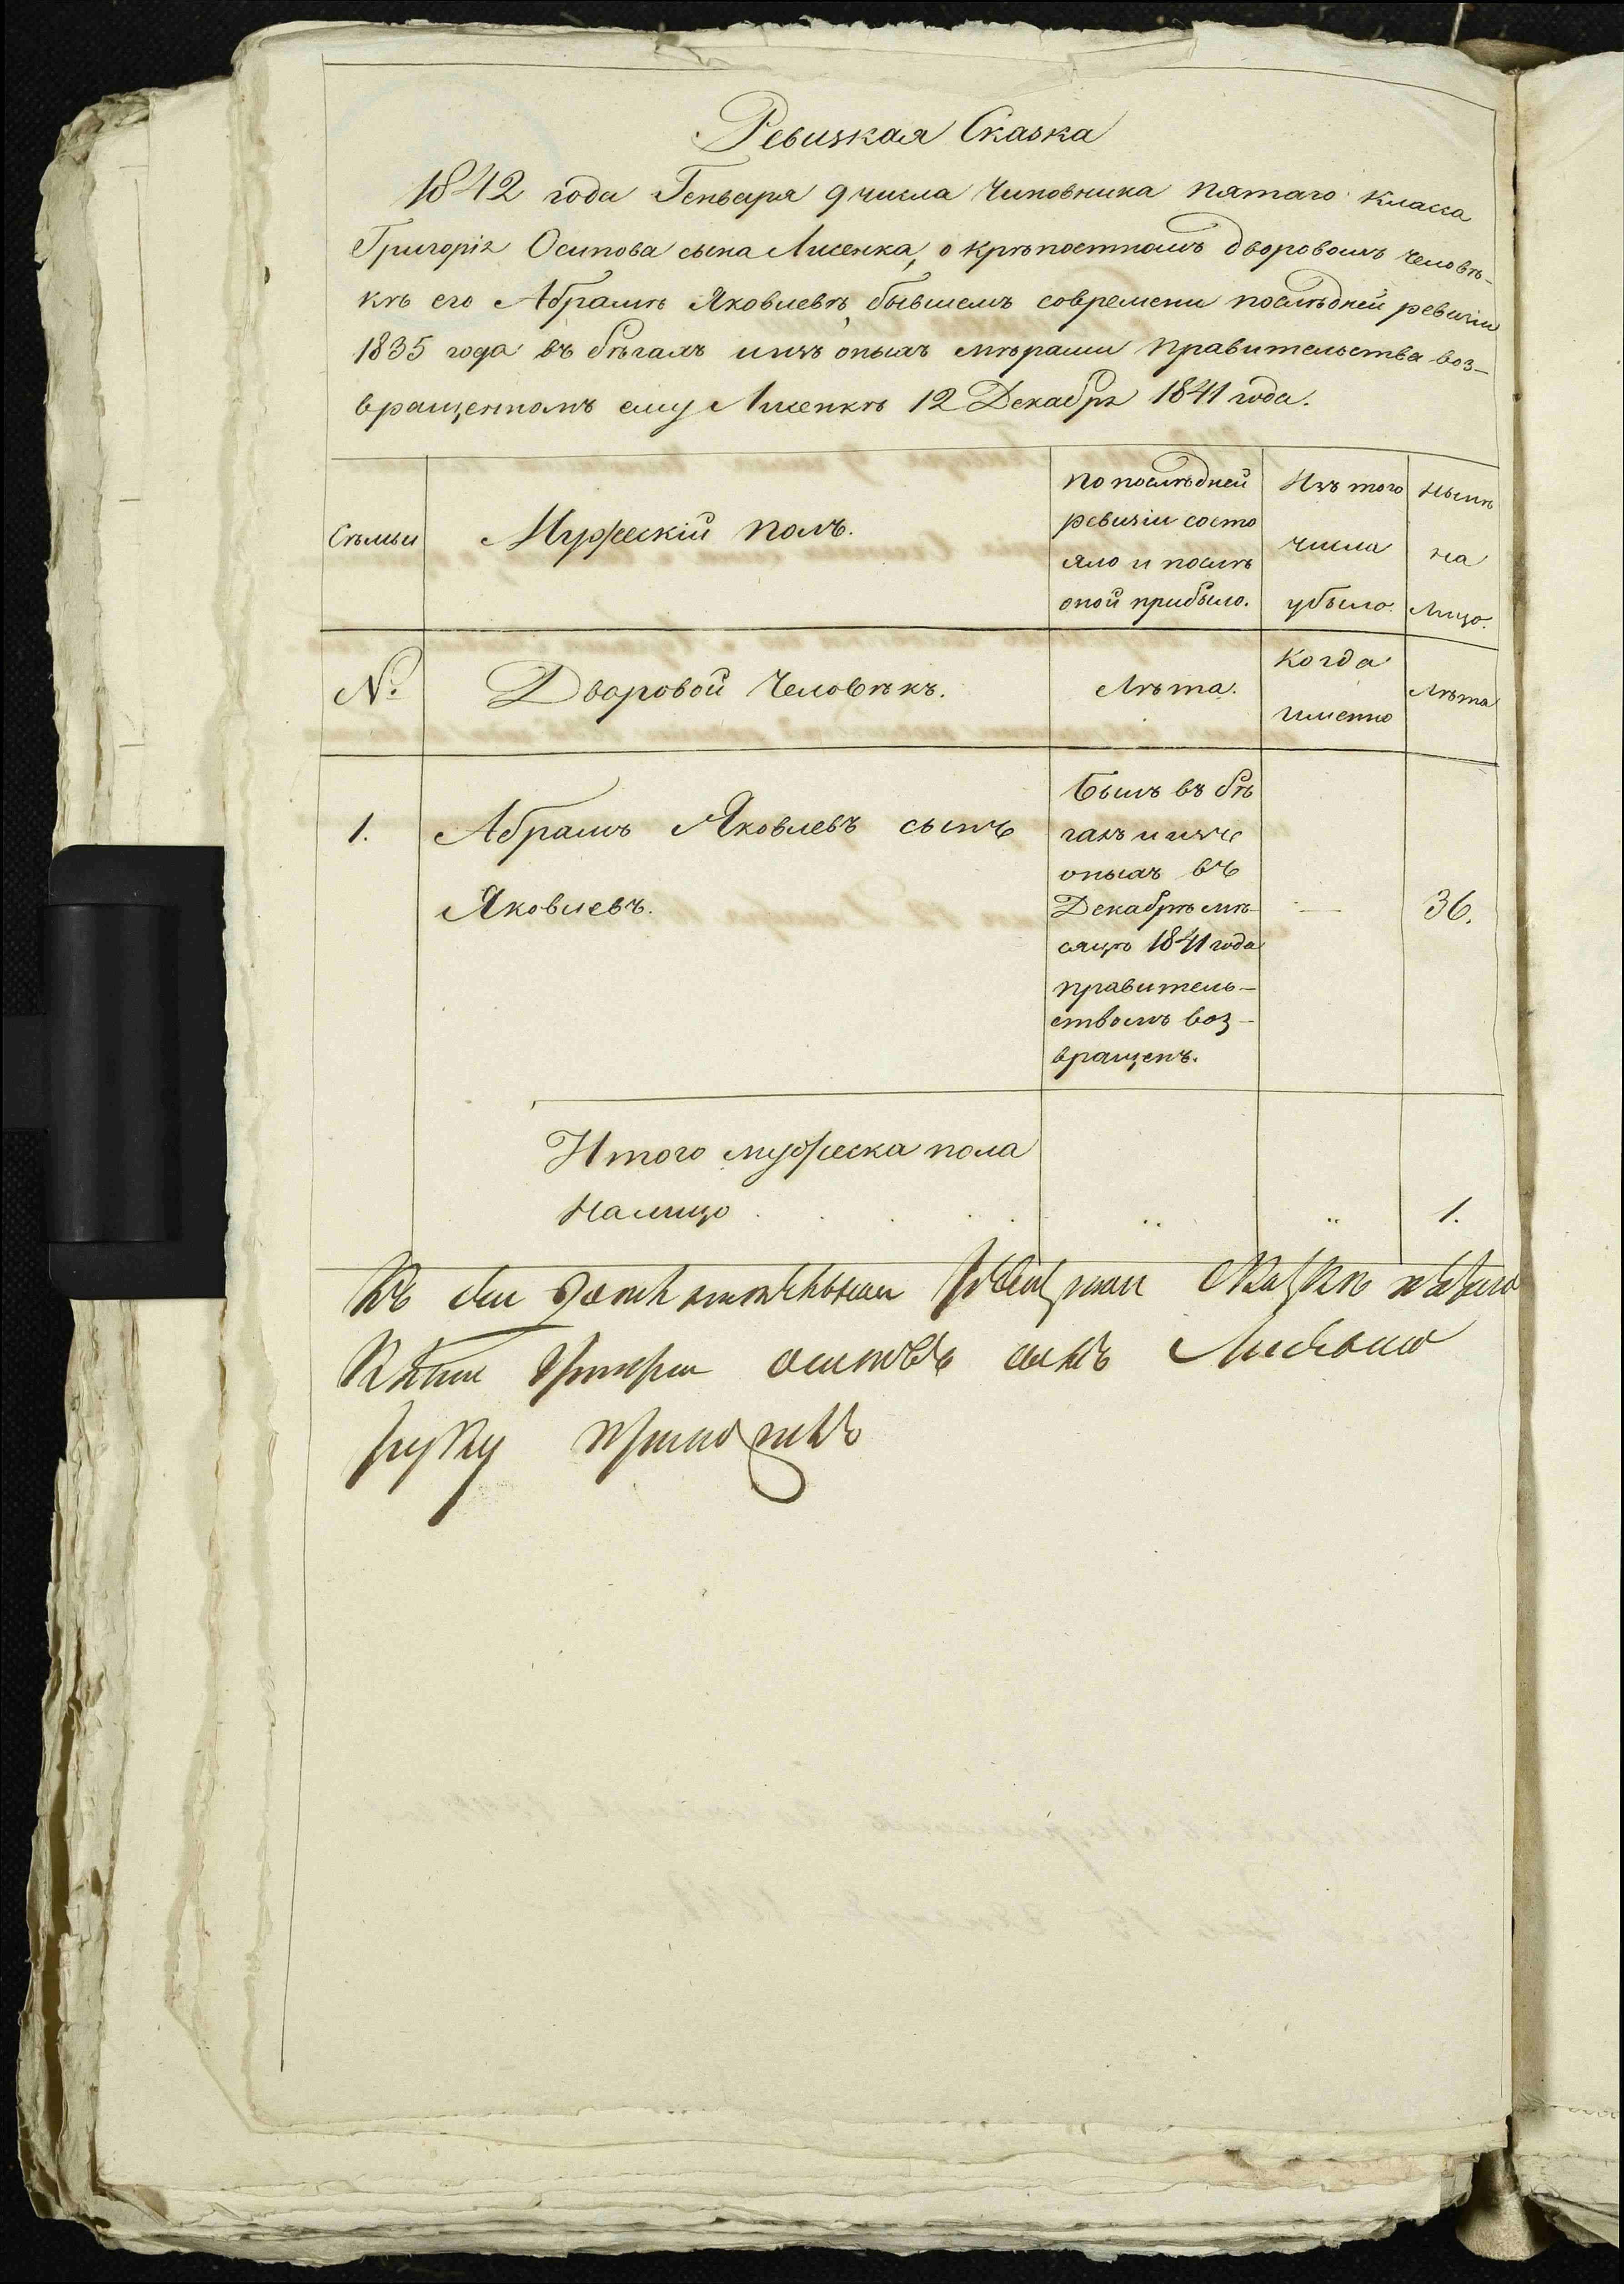 Ревизкая Сказка
1842 года Генваря 9 числа Чиновника пятаго класса
Григорія Осипова сына Лисенка, о крѣпостномъ дворовомъ человѣ-
кѣ его Абрамѣ Яковлевѣ, бывшемъ современи послѣдней ревизіи
1835 года въ бѣгахъ иизъ оныхъ мѣрами правительства воз-
вращенномъ ему Лисенкѣ 12 Декабря 1841 года.
Сѣмьи
Мужескій полъ.
По послѣдней
ревизіи состо
яло и послѣ
оной прибыло.
Изъ того
числа
убыло.
Нынѣ
на
лицо.
№
Дворовой Человѣкъ.
Лѣта.
Когда
именно
Лѣта
1.
Абрамъ Яковлевъ сынъ
Яковлевъ.
Былъ въ бѣ
гахъ и изъ
оныхъ въ
Декабрѣ мѣ-
сяцѣ 1841 года
правитель-
ствомъ воз-
вращенъ.
—
36.
Итого мужеска пола
налицо . . . . . . 1.
Къ сей ревизкой скаскѣ
руку приложилъ